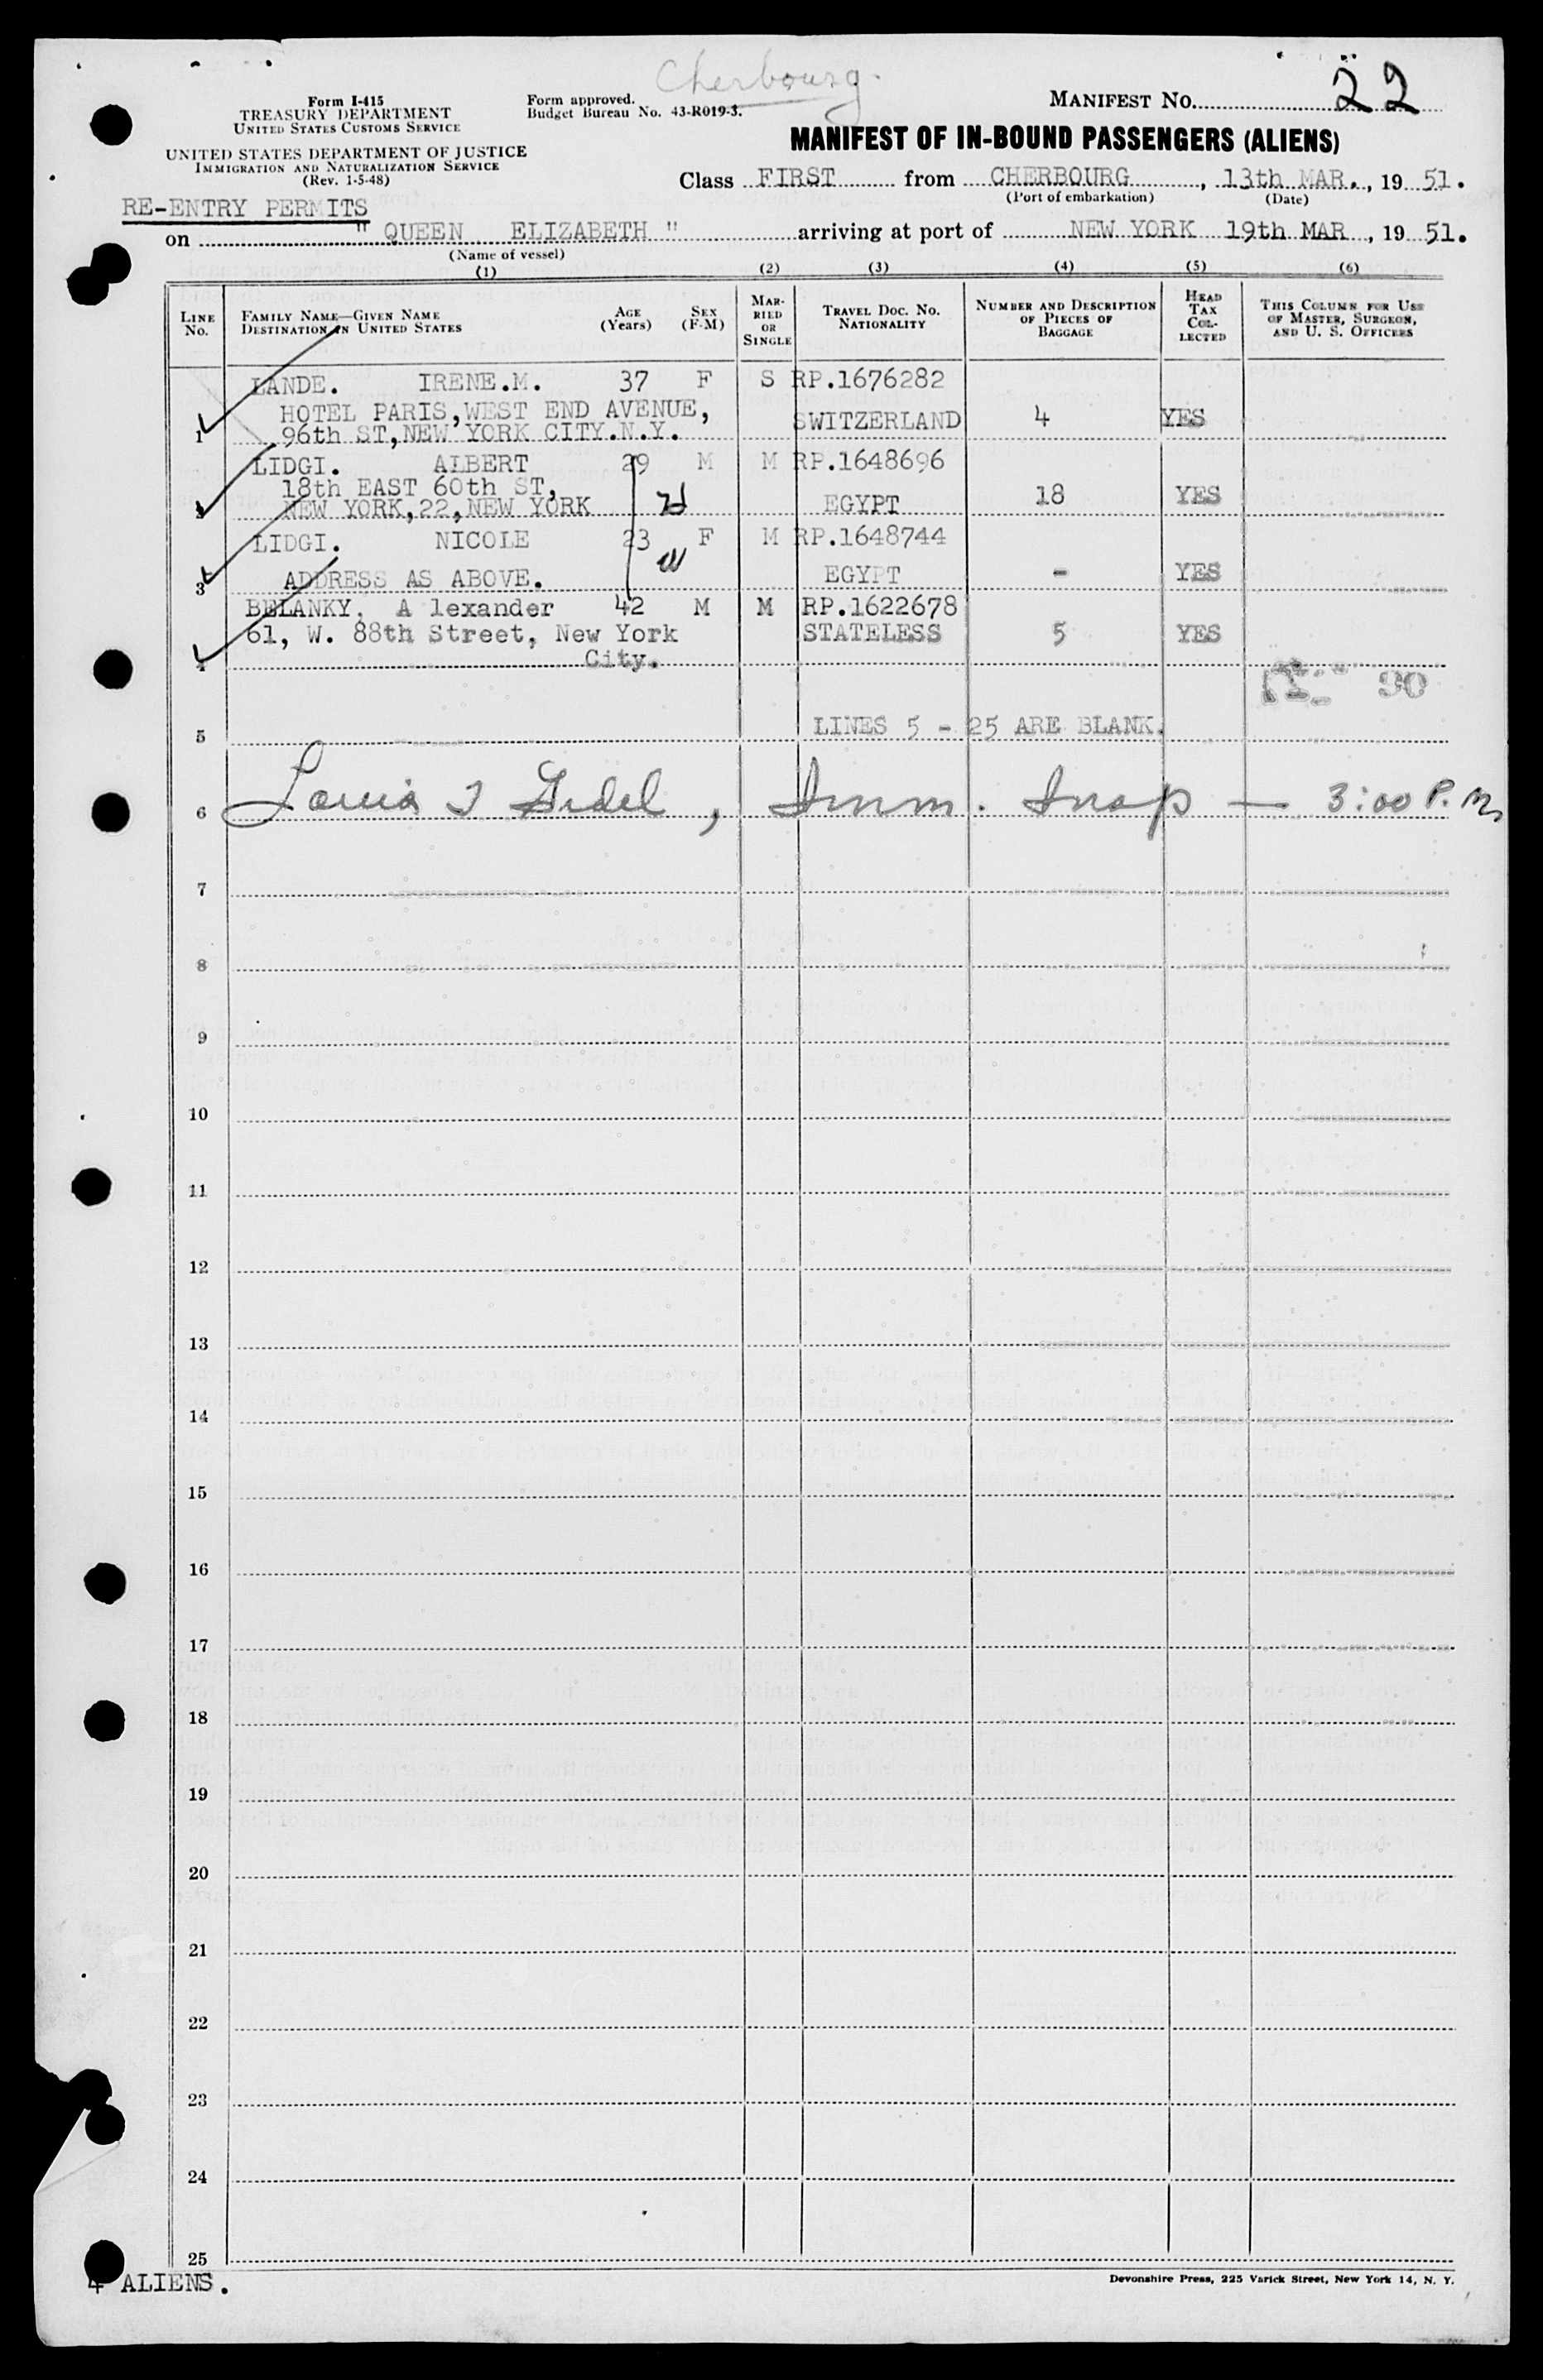 Cherbourg.
Form I-415
TREASURY DEPARTMENT
UNITED STATES CUSTOMS SERVICE
Form approved.
Budget Bureau No. 43-R019-3.
MANIFEST NO. 22
UNITED STATES DEPARTMENT OF JUSTICE
IMMIGRATION AND NATURALIZATION SERVICE
(Rev. 1-5-48)
MANIFEST OF IN-BOUND PASSENGERS (ALIENS)
Class FIRST from CHERBOURG, 13th MAR., 1951.
(Port of embarkation) (Date)
RE-ENTRY PERMITS
on " QUEEN ELIZABETH " arriving at port of NEW YORK 19th MAR, 1951.
(Name of vessel)
(1) (2) (3) (4) (5) (6)
LINE NO. FAMILY NAME—GIVEN NAME DESTINATION IN UNITED STATES AGE (Years) SEX (F-M) MARRIED OR SINGLE TRAVEL DOC. NO. NATIONALITY NUMBER AND DESCRIPTION OF PIECES OF BAGGAGE HEAD TAX COLLECTED THIS COLUMN FOR USE OF MASTER, SURGEON, AND U. S. OFFICERS
LANDE. IRENE.M. 37 F S RP.1676282
HOTEL PARIS,WEST END AVENUE, SWITZERLAND 4 YES
1 96th ST,NEW YORK CITY.N.Y.
LIDGI. ALBERT 29 M M RP.1648696
18th EAST 60th ST, EGYPT 18 YES
2 NEW YORK,22,NEW YORK
LIDGI. NICOLE 23 F M RP.1648744
3 ADDRESS AS ABOVE. EGYPT - YES
BELANKY, A lexander 42 M M RP.1622678
61, W. 88th Street, New York STATELESS 5 YES
4 City.
90
5 LINES 5 - 25 ARE BLANK.
6 Louis Gidel, Imm. Insp — 3:00 P.M.
7
8
9
10
11
12
13
14
15
16
17
18
19
20
21
22
23
24
25
4 ALIENS.
Devonshire Press, 225 Varick Street, New York 14, N. Y.